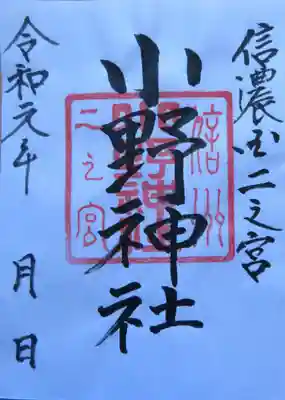 信濃国二之宮
小野神社
令和元年 月 日
信州
二之宮